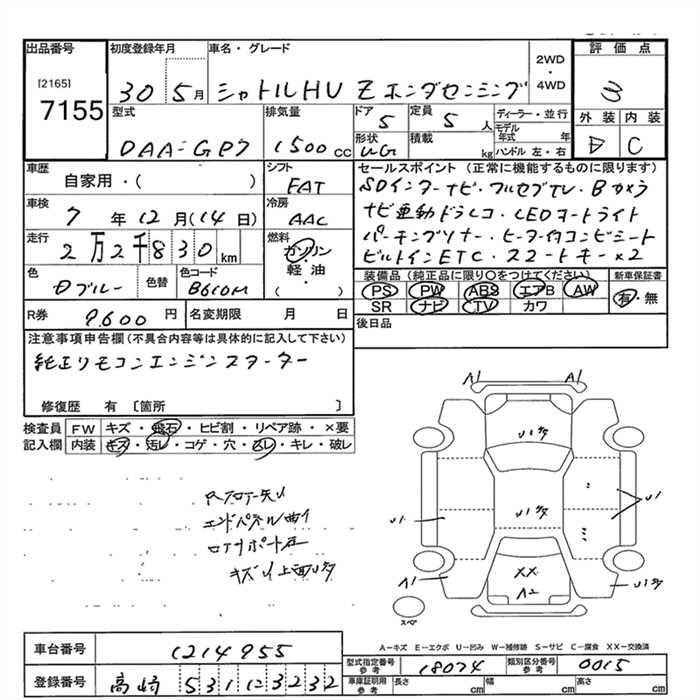 出品番号 初度登録年月 車名・グレード 2WD・4WD 評価点
[2165]
7155
30 5月 シャトルHV Z ホンダセンシング 3
型式 排気量 ドア 定員 ディーラー・並行 外装 内装
DAA-GP7 1500cc 5 5人 モデル年式 年
形状 積載 kg ハンドル 左・右 C
車歴 シフト セールスポイント (正常に機能するものに限ります)
自家用・( ) FAT
SDインターナビ・フルセグTV・Bカメラ
車検 冷房
7年12月(14日) AAC
ナビ連動ドラレコ・LEDオートライト
走行 燃料
2万2千830km ガソリン・軽油・( )
パーキングソナー・ヒーター付コンビシート
ビルトインETC・スマートキー×2
色 色替 色コード
Dブルー B610M
装備品 (純正品に限り○をつけてください) 新車保証書
PS PW ABS エアB AW 有・無
SR ナビ TV カワ
R券 9600円 名変期限 月 日
後日品
注意事項申告欄 (不具合内容等は具体的に記入して下さい)
純正リモコンエンジンスターター
修復歴 有 〔箇所 〕
検査員 FW キズ・飛石・ヒビ割・リペア跡・×要
記入欄 内装 キズ・汚レ・コゲ・穴・スレ・キレ・破レ
A1 A1
U1
U1
U1 U1
A1
XX
A2
エンドパネル曲り
スペア
A－キズ E－エクボ U－凹み W－補修跡 S－サビ C－腐食 XX－交換済
車台番号 1214955
型式指定番号 参考 18074 類別区分番号 参考 0015
登録番号 高崎 531 ひ 3232
車庫証明用 参考 長さ cm 幅 cm 高さ cm